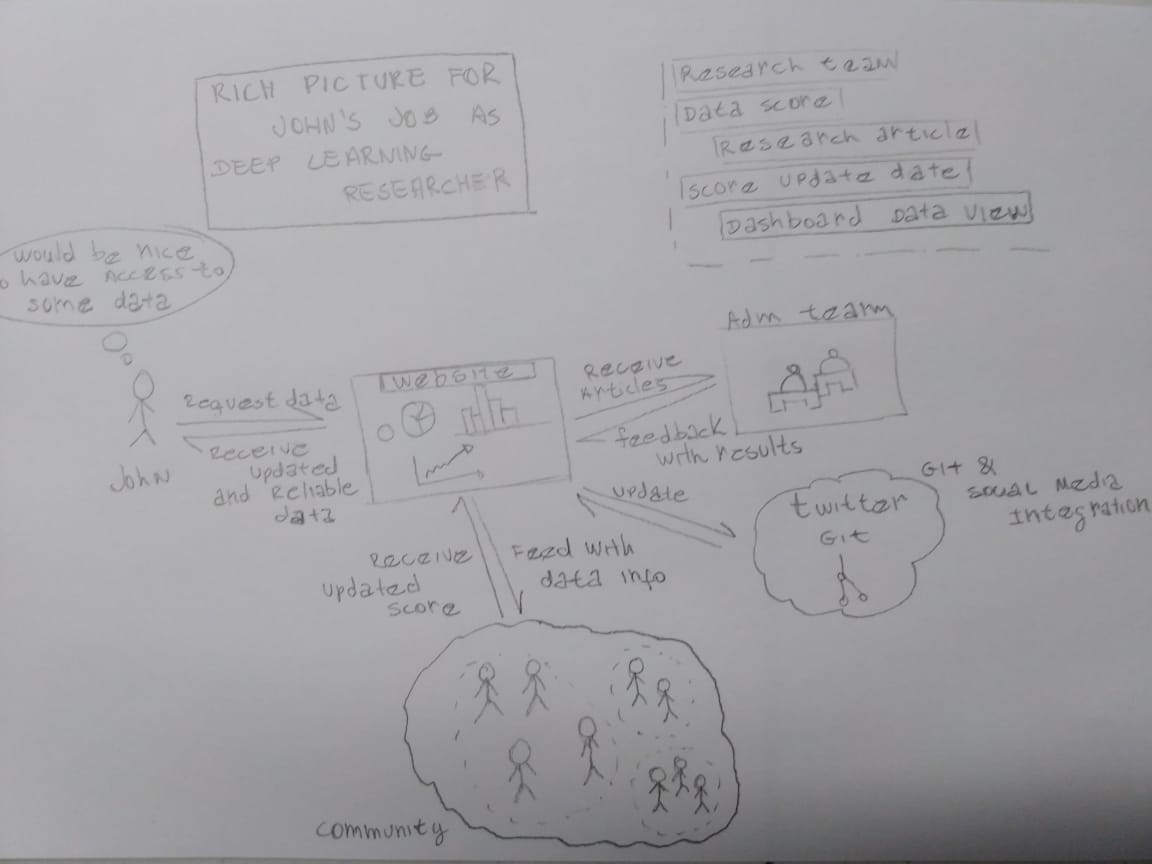 RICH PICTURE FOR
JOHN'S JOB AS
DEEP LEARNING
RESEARCHER
Research team
Data score
Research article
Score update date
Dashboard data view
would be nice
o have access to
some data
John
Request data
Receive
updated
and Reliable
data
website
Receive
Articles
feedback
with results
Adm team
update
twitter
Git
Git &
Social Media
Integration
Receive
updated
score
Feed with
data info
community